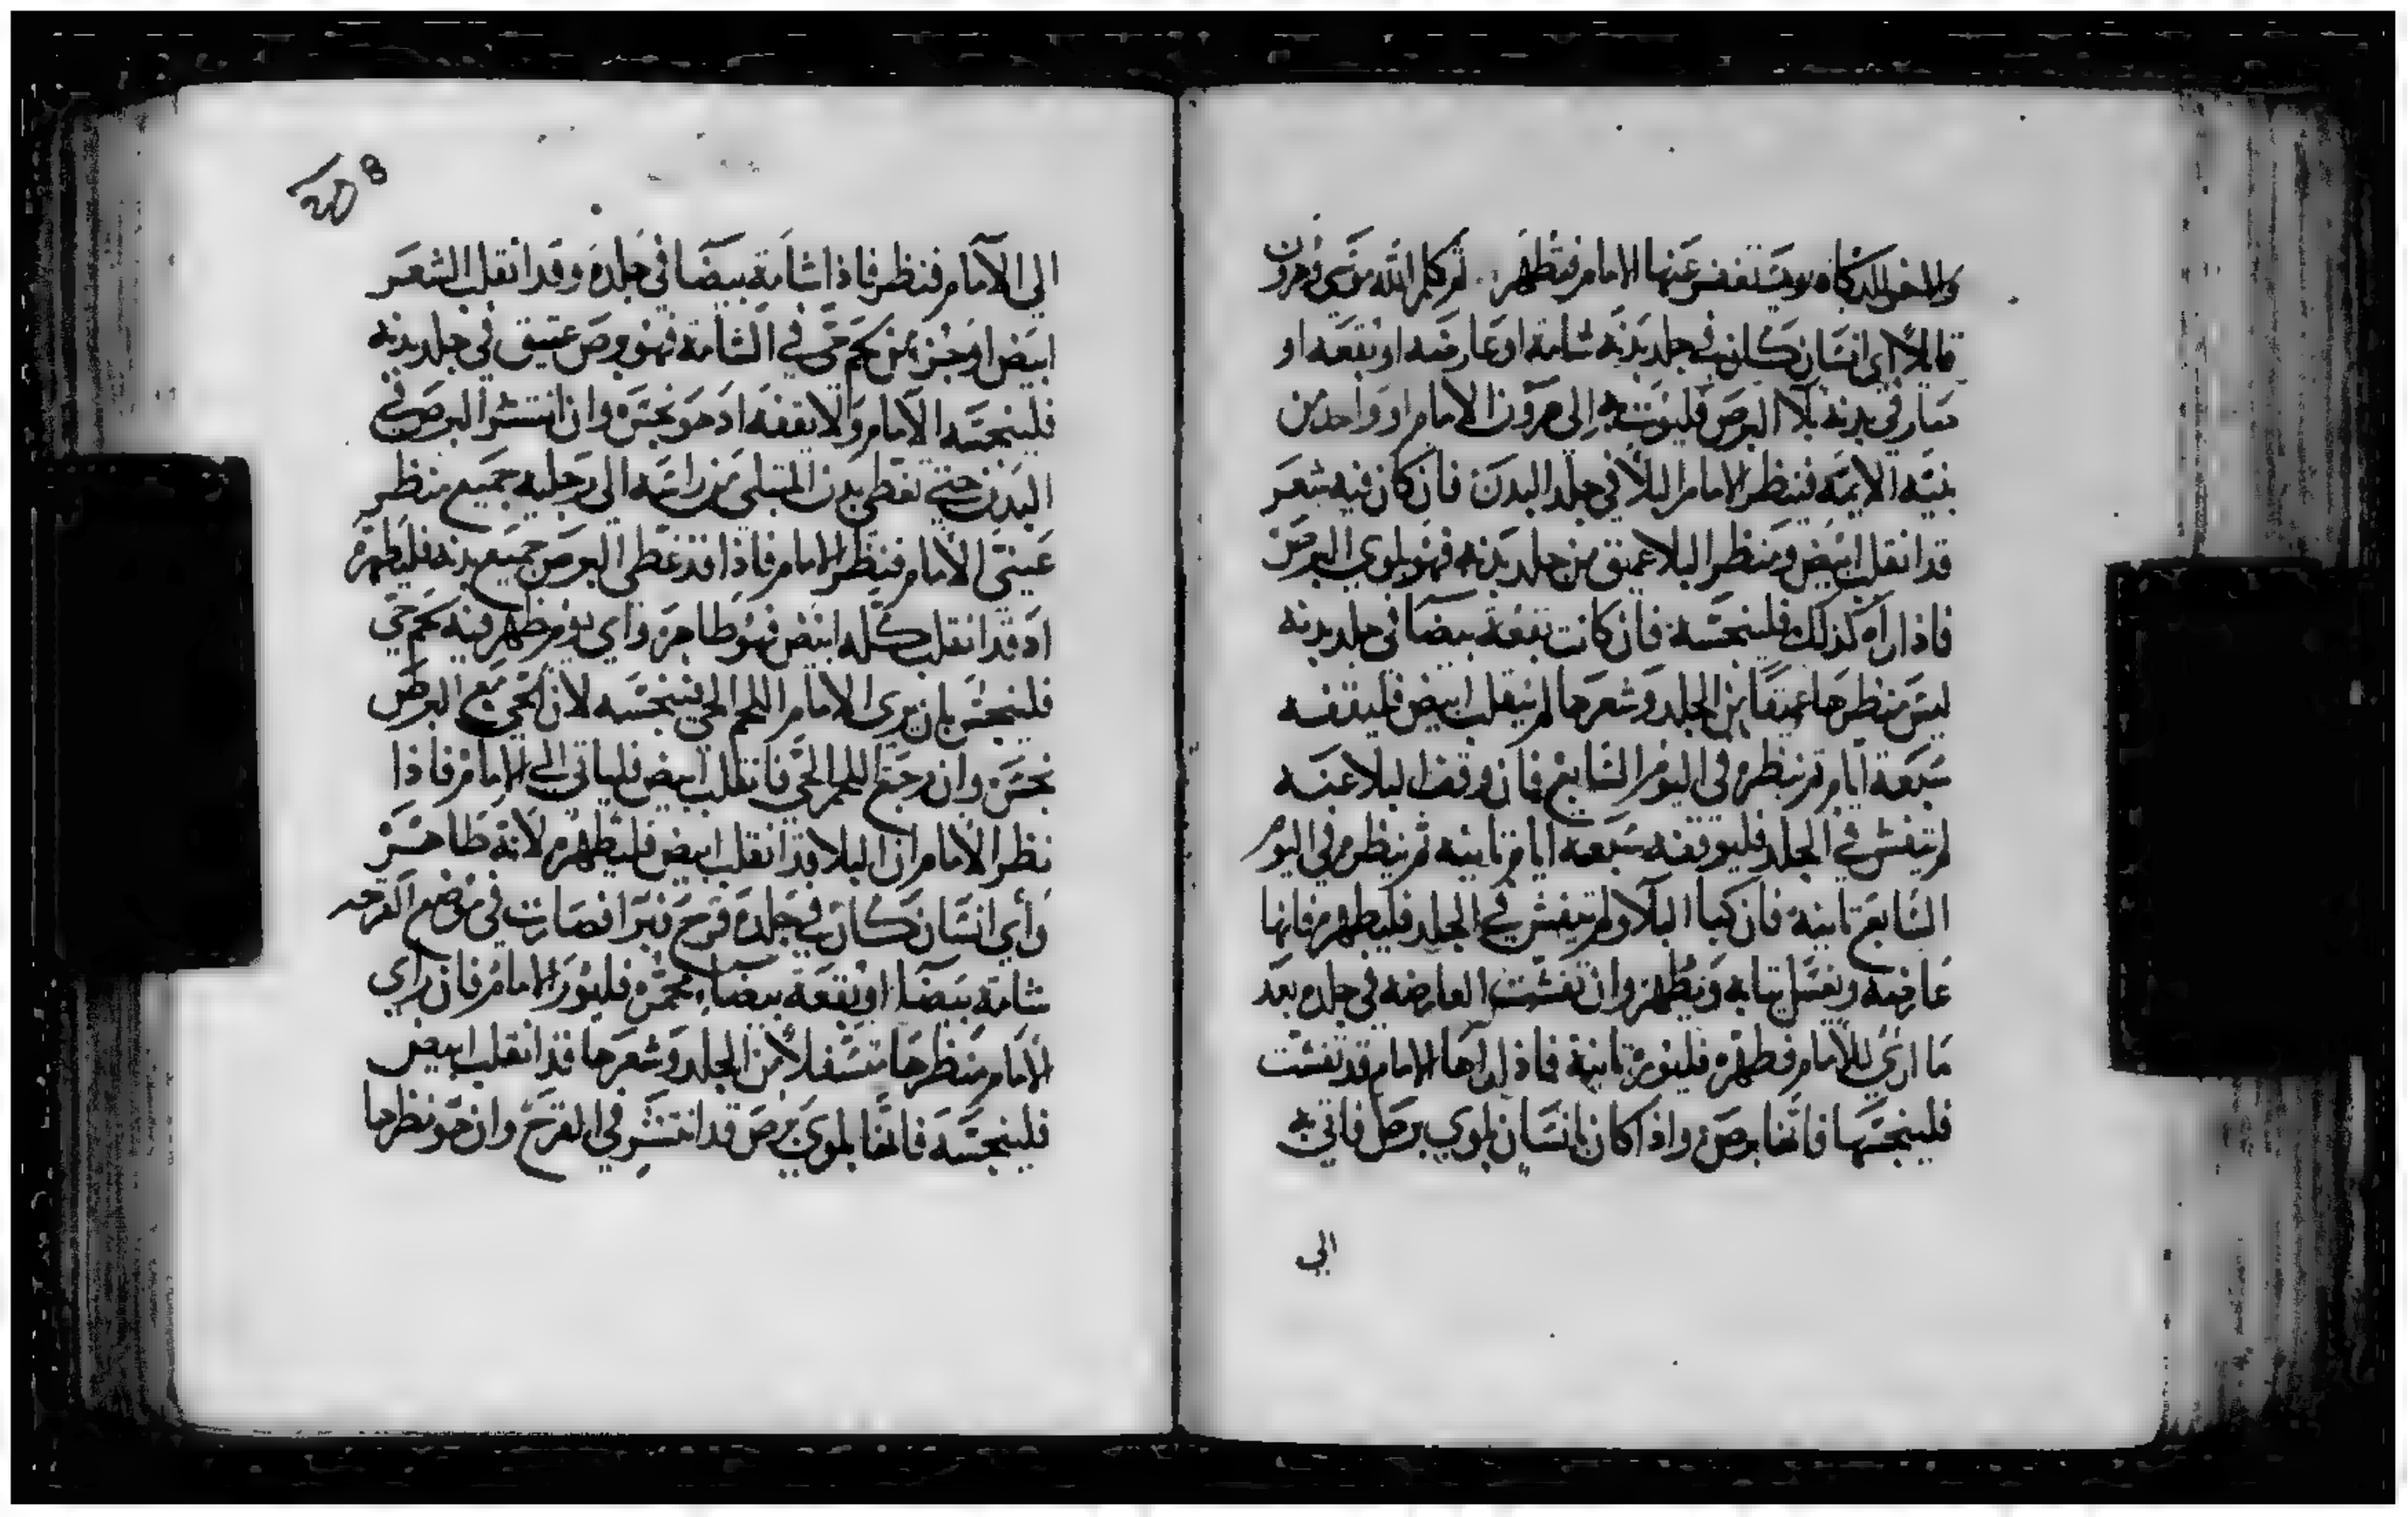 والاخر للدكاه ويستغفر عنها الامام فتطهر . ثم كلم الله موسى وهرون
قايلا اي انسان كان في جلد بدنه شامة او عارضه او بقعه او
صار في بدنه بلا البرص فليوت به إلى هرون الامام او واحد من
بنيه الايمه فينظر الامام البلا في جلد البدن فان كان فيه شعر
قد انقلب ابيض ومنظر البلا عميق من جلد بدنه فهو بلوي البرص
فاذا راه كذلك فلينجسه فان كانت بقعة بيضا في جلد بدنه
ليس منظرها عميقا من الجلد وشعرها لم ينقلب ابيض فليقفه
سبعة ايام ثم ينظره في اليوم السابع فان وقف البلا عنه
لم يتفش في الجلد فليوقفه سبعه ايام تانيه ثم ينظره في اليوم
السابع تانية فان كبا البلا ولم يتفش في الجلد فليطهره فانها
عارضه ويغسل تيابه ويطهر وان تفشت العارضه في جلده بعد
ما اري للامام فطهره فليوره تانية فاذا راها الامام قد تفشت
فلينجسها فانها برص واذا كان بانسان بلوي برص فاتي به
الي
الي الامام فنظر فاذا شامة بيضا في جلده وقد انقلب الشعر
ابيض او جز من لحم حي في الشامة فهو برص عتيق في جلد بدنه
فلينجسه الامام ولا يقفه اد هو نجس وان انتشر البرص في
البدن حتى تغطي بدن المبتلي من راسه الى رجليه جميع منظر
عيني الامام فنظر الامام فاذا قد غطى البرص جميع بدنه فليطهره
اد قد انقلب كله ابيض فهو طاهر واي يوم ظهر فيه لحم حي
فلينجس بان يرى الامام اللحم الحي فينجسه لان الحي مع البرص
نجس وان رجع اللحم الحي فانقلب ابيض فلياتي الي الامام فاذا
نظر الامام ان البلا قد انقلب ابيض فليطهره لانه طاهر
واي انسان كان في جلده قرح فبرا فصارت في موضع القرحه
شامة بيضا او بقعة بيضا محمره فليور الامام فان راى
الامام منظرها متسفلا من الجلد وشعرها قد انقلب ابيض
فلينجسه فانها بلوي برص قد انتشر في القرح وان هو نظرها